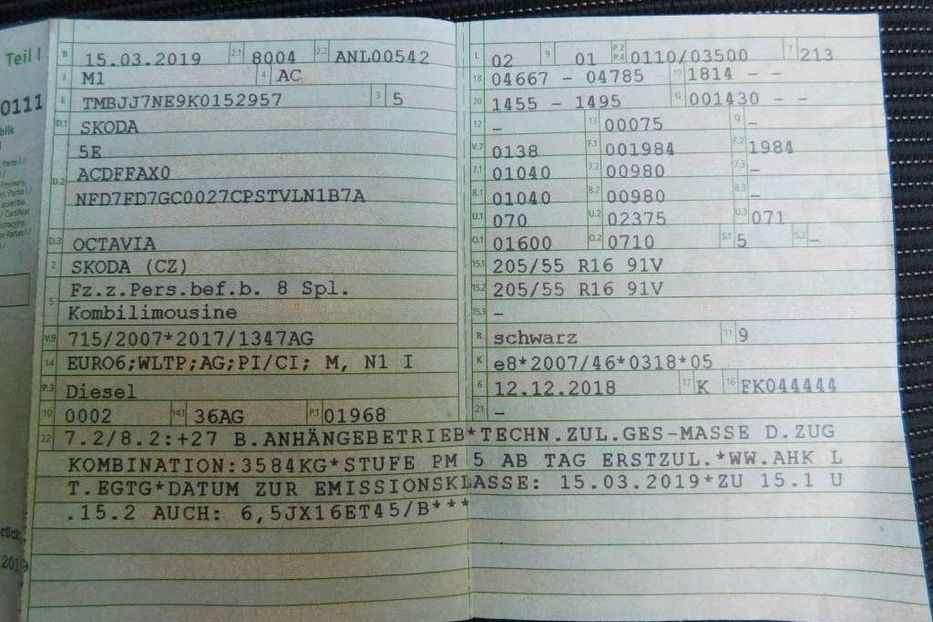 Teil I
B 15.03.2019 2.1 8004 2.2 ANL00542
J M1 4 AC
0111
E TMBJJ7NE9K0152957 3 5
D.1 SKODA
5E
D.2 ACDFFAX0
NFD7FD7GC0027CPSTVLN1B7A
D.3 OCTAVIA
2 SKODA (CZ)
5 Fz.z.Pers.bef.b. 8 Spl.
Kombilimousine
V.9 715/2007*2017/1347AG
14 EURO6;WLTP;AG;PI/CI; M, N1 I
P.3 Diesel
10 0002 14.1 36AG P.1 01968
L 02 9 01 P.2 P.4 0110/03500 T 213
18 04667 - 04785 19 1814 - -
20 1455 - 1495 G 001430 - -
12 - 13 00075 Q -
V.7 0138 F.1 001984 F.2 1984
7.1 01040 7.2 00980 7.3 -
8.1 01040 8.2 00980 8.3 -
U.1 070 U.2 02375 U.3 071
O.1 01600 O.2 0710 S.1 5 S.2 -
15.1 205/55 R16 91V
15.2 205/55 R16 91V
15.3 -
R schwarz 11 9
K e8*2007/46*0318*05
6 12.12.2018 17 K 16 FK044444
21 -
22 7.2/8.2:+27 B.ANHÄNGEBETRIEB*TECHN.ZUL.GES-MASSE D.ZUG
KOMBINATION:3584KG*STUFE PM 5 AB TAG ERSTZUL.*WW.AHK L
T.EGTG*DATUM ZUR EMISSIONSKLASSE: 15.03.2019*ZU 15.1 U
.15.2 AUCH: 6,5JX16ET45/B***